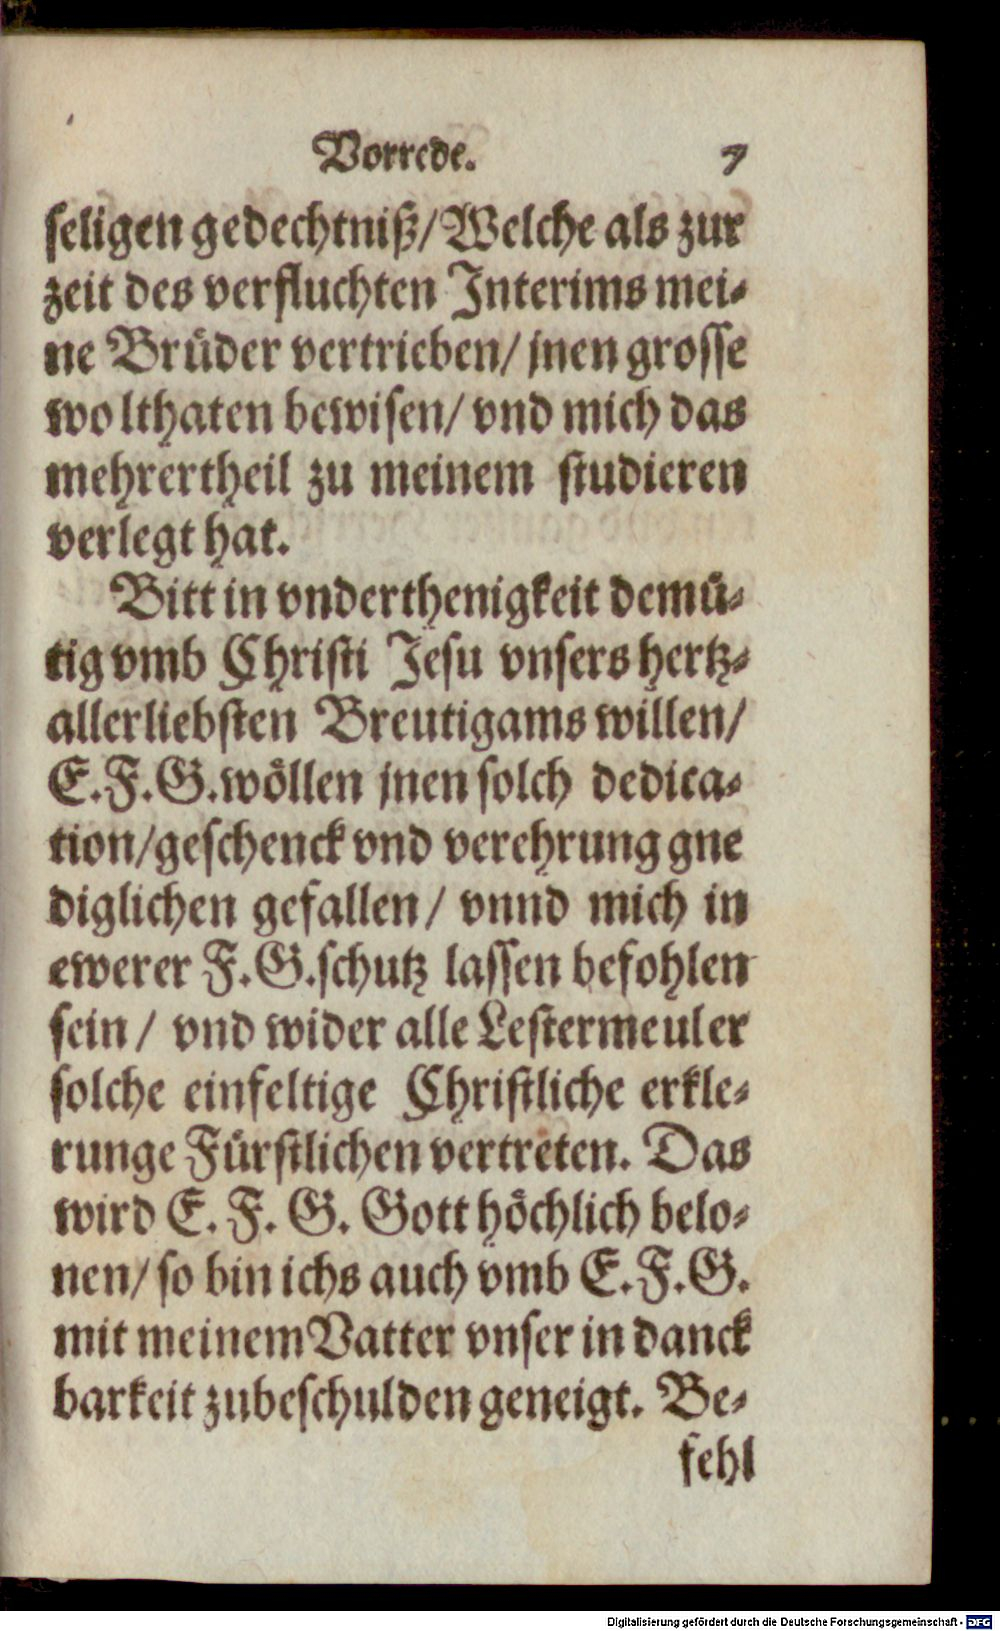 Vorrede. 7
seligen gedechtniß/ Welche als zur
zeit des verfluchten Interims mei-
ne Bruͤder vertrieben/ jnen grosse
wolthaten bewisen/ vnd mich das
mehrertheil zu meinem studieren
verlegt hat.
Bitt in vnderthenigkeit demuͤ-
tig vmb Christi Jesu vnsers hertz-
allerliebsten Breutigams willen/
E.F.G. woͤllen jnen solch dedica-
tion/ geschenck vnd verehrung gne
diglichen gefallen/ vnnd mich in
ewerer F.G. schutz lassen befohlen
sein/ vnd wider alle Lestermeuler
solche einfeltige Christliche erkle-
runge Fuͤrstlichen vertreten. Das
wird E. F. G. Gott hoͤchlich belo-
nen/ so bin ichs auch vmb E.F.G.
mit meinem Vatter vnser in danck
barkeit zubeschulden geneigt. Be-
fehl
Digitalisierung gefördert durch die Deutsche Forschungsgemeinschaft - DFG